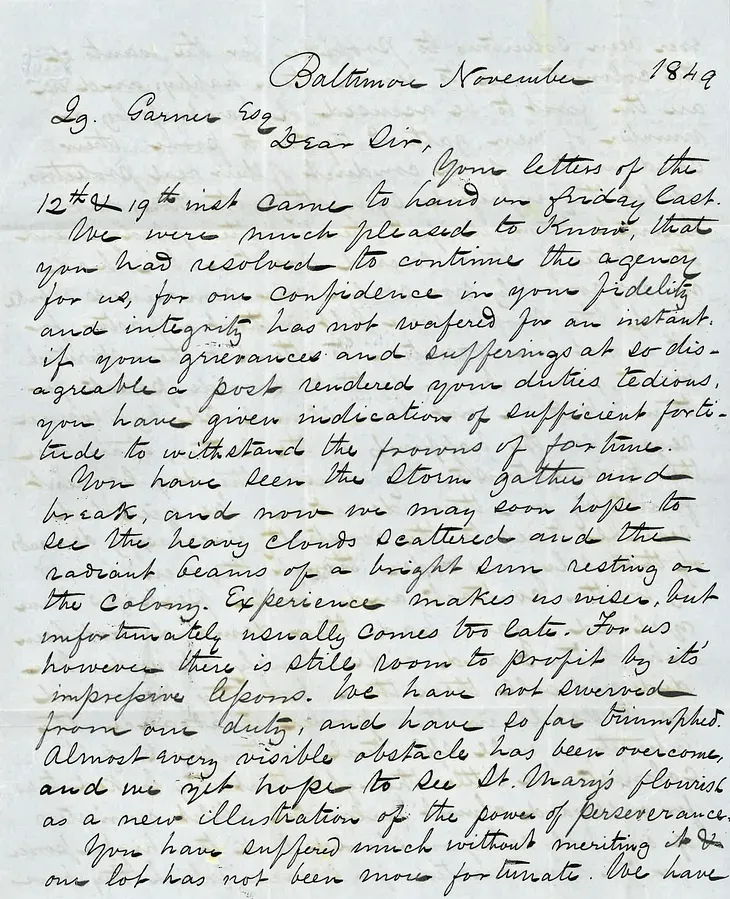 Baltimore November 1849
Ig. Garner Esq
Dear Sir,
Your letters of the
12th & 19th inst came to hand on friday last.
We were much pleased to Know, that
you had resolved to continue the agency
for us, for our confidence in your fidelity
and integrity has not wafered for an instant.
if your grievances and sufferings at so dis-
agreable a post rendered your duties tedious,
you have given indication of sufficient forti-
tude to withstand the frowns of fortune.
You have seen the Storm gather and
break, and now we may soon hope to
see the heavy clouds scattered and the
radiant beams of a bright sun resting on
the Colony. Experience makes us wiser, but
unfortunately usually comes too late. For us
however there is still room to profit by it's
impressive lessons. We have not swerved
from our duty, and have so far triumphed.
Almost every visible obstacle has been overcome,
and we yet hope to see St. Mary's flourish
as a new illustration of the power of perseverance.
You have suffered much without meriting it &
our lot has not been more fortunate. We have